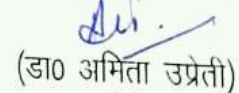 (डा0 अमिता उप्रेती)